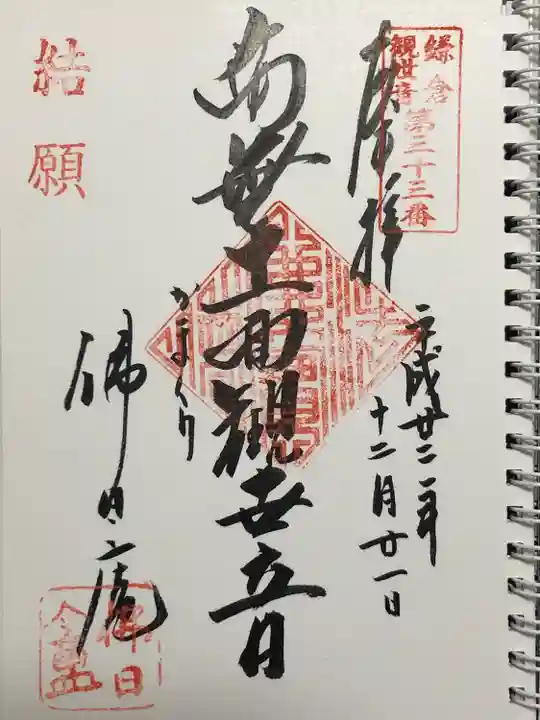 鎌倉
観世音
第三十三番
奉拝
平成廿二年
十二月廿一日
南無十一面観世音
かまくら
結願
佛日庵
佛日